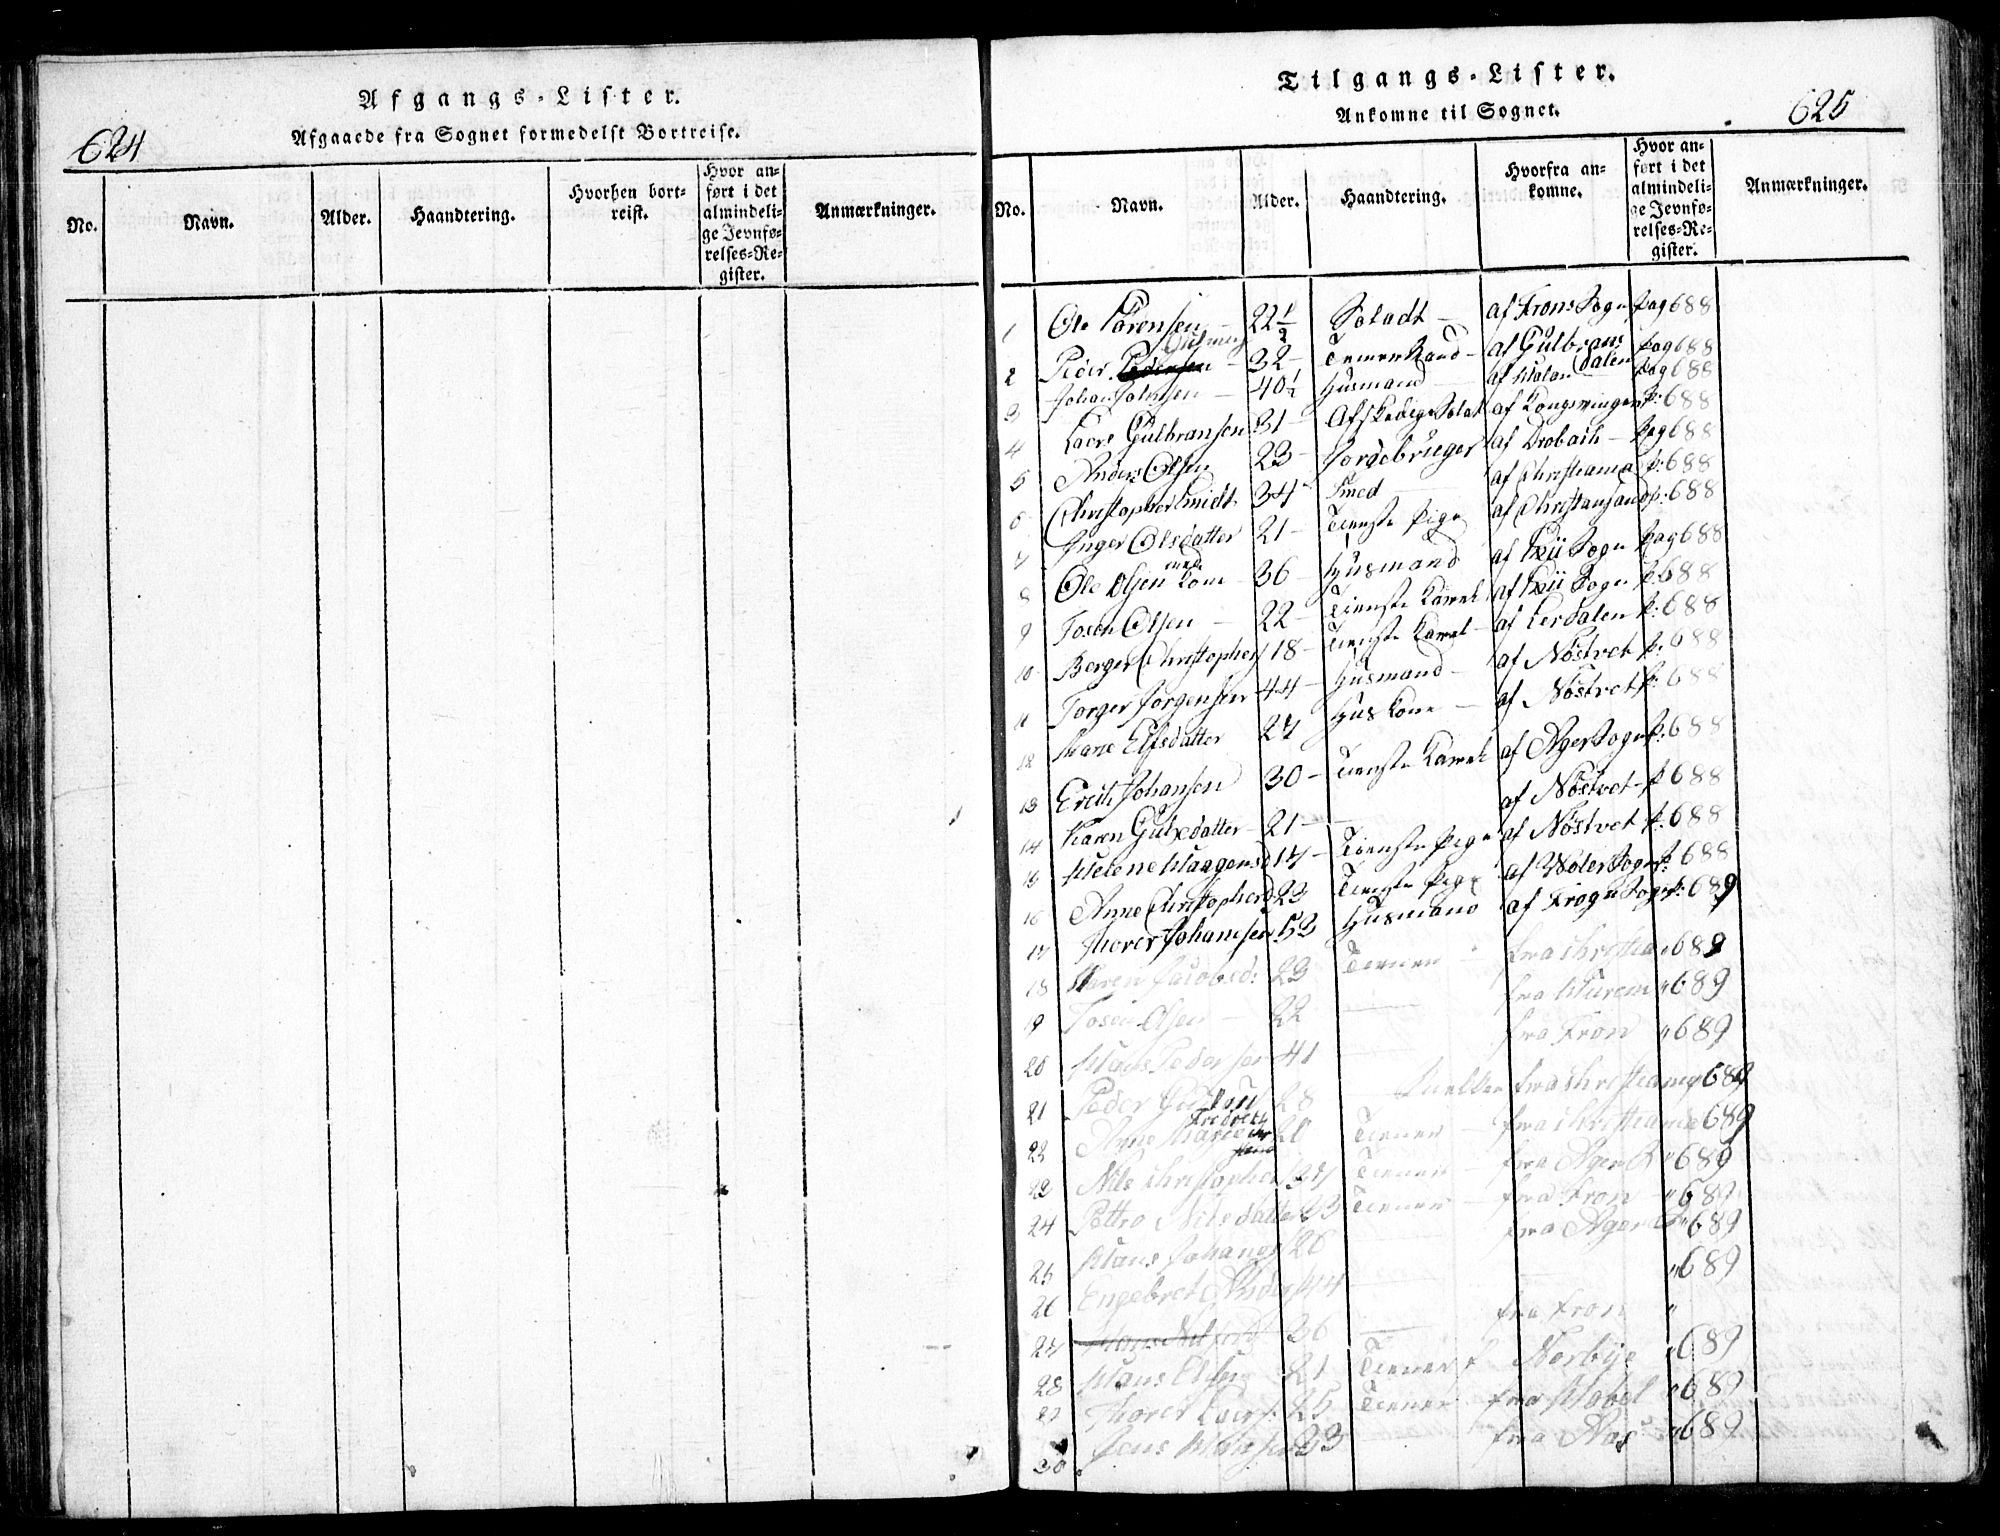 624
Afgangs-Lister.
Afgaaede fra Sognet formedelst Bortreise.
No. Navn. Alder. Haandtering. Hvorhen bort-
reist. Hvor an-
ført i det
almindeli-
ge Jevnfø-
relses-Re-
gister. Anmærkninger.
Tilgangs-Lister.
625
Ankomne til Sognet.
No. Navn. Alder. Haandtering. Hvorfra an-
komne. Hvor an-
ført i det
almindeli-
ge Jevnfø-
relses-Re-
gister. Anmærkninger.
1 Ole Sörensen 22 1/2 Soladt af Frons Sogn pag 688
2 Peder 32 af Gulbrans dalen pag 688
3 Johan 40 1/2 Husmand af pag 688
4 Lars Gulbransen 31 Afskediget Soldat af Kongsvinger p: 688
5 Anders Olsen 23 Jordebruger af Drobach pag 688
6 Christopher Smidt 34 Smed af Christiania p: 688
7 Inger Olsdatter 21 Tieneste Pige af Christiansand p: 688
8 Ole Olsen med Kone 36 Husmand af Sogn pag 688
9 Tosen Olsen 22 Tieneste Karl af Sogn p: 688
10 Berger Christophers 18 Tieneste Karl af Lerdalen p: 688
11 Torger Jörgensen 44 Husmand af Nöstvet p: 688
12 Marie Elfsdatter 27 Huskone af Nöstvet p: 688
13 Erich Johansen 30 Tieneste Karl af Ager Sogn p: 688
14 Karen 21 af Nöstvet p 688
15 Helene Haagensd 17 Tieneste Pige af Nöstvet p: 688
16 Anne Christophersd 23 Tieneste Pige af Sogn p: 688
17 Thorer Johannsen 53 Husmand af Frogn Sogn p: 689
18 Maren Jacobsd: 23 Tiener fra Christia " 689
19 Tosen Olsen 22 fra " 689
20 Hans Pedersen 41 fra Fron " 689
21 Peder 28 fra Christiania " 689
22 Anne Marie Fredrek 20 Tiener fra Christiania 689
23 Nils Christophers 27 Tiener fra Ager " 689
24 Nilsdatter 23 Tiener fra Fron " 689
25 Hans Johans 26 fra Ager " 689
26 Engebret Anders 44 " 689
27 36 fra Fron "
28 Hans 21 Tiener f Norbye " 689
29 Thorer Lars: 25 Tiener fra " 689
30 Jens Hansen 23 fra Aas " 689